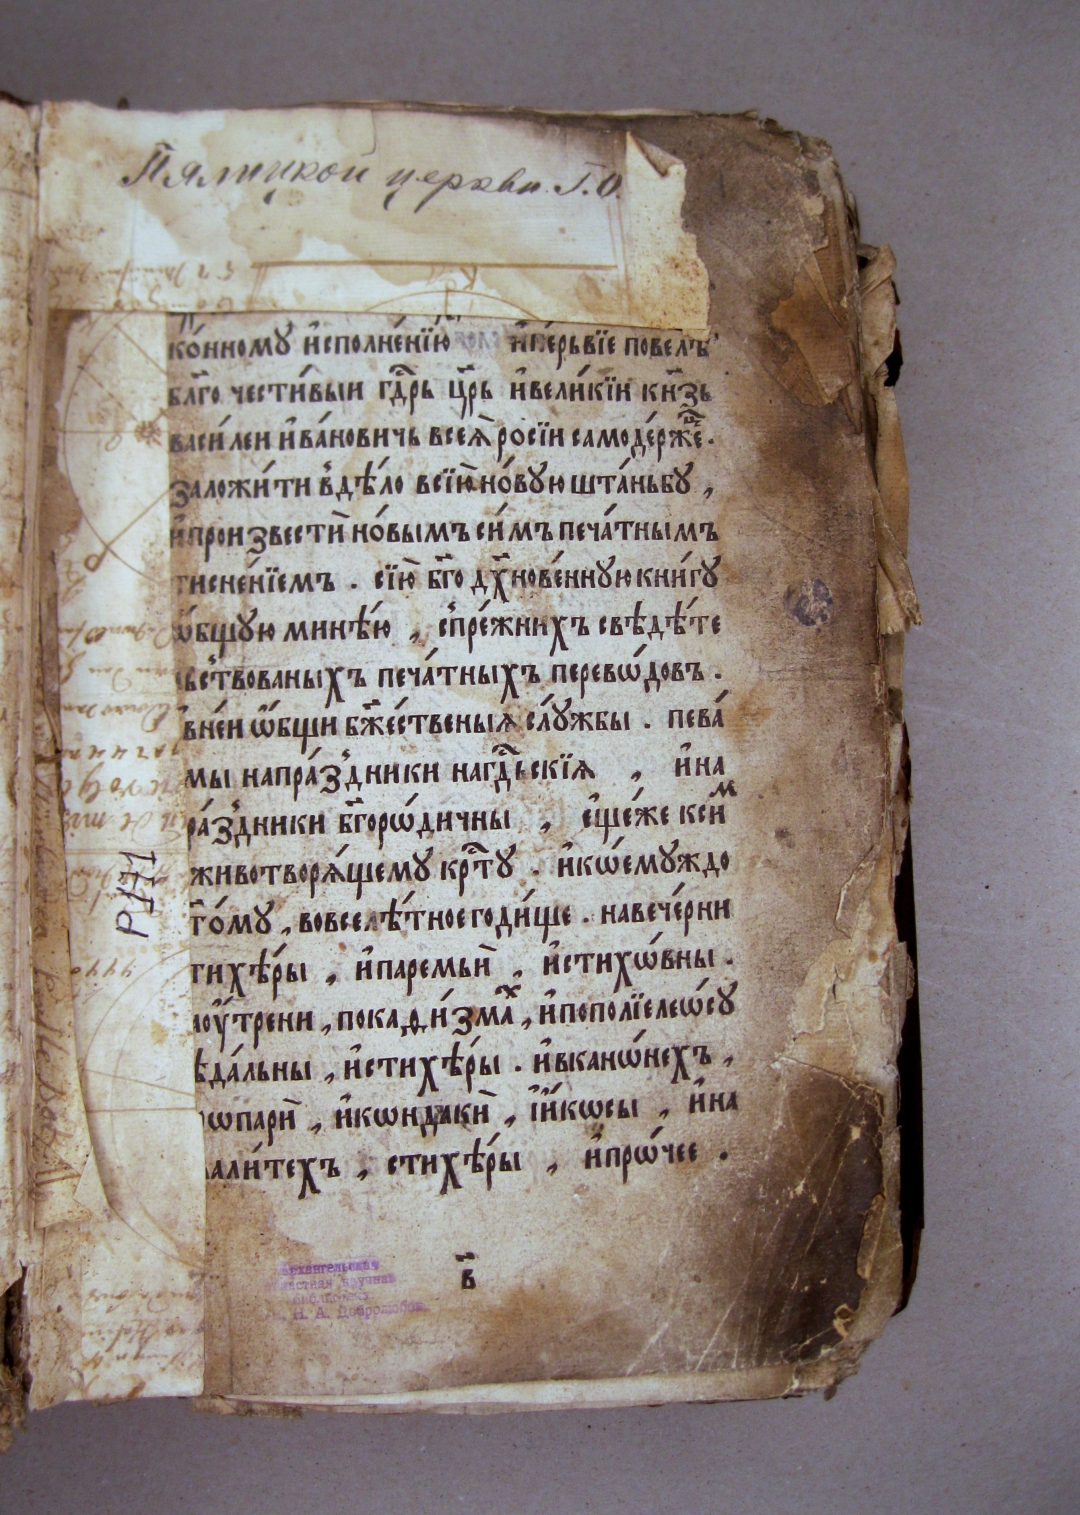 Пялицкой церкви. Г.О.
ко́нному и҆сполне́нїю и҆пе́рьвїе повелѣ̀
бл҃го чести́выи гдⷭ҇рь цр҃ь и҆вели́кїи кн҃зь
васи́леи и҆ва́новичь всеѧ̀ росїи самоде́ржецъ.
заложи́ти в̾дѣ́ло всїю̀ но́вую шта́ньбу ,
и҆произвестѝ но́вымъ си́мъ печа́тнымъ
тисне́нїемъ . сїю̀ бг҃о дх҃нове́нную кни́гу
ѻ҆бщую мине́ю , с̾пре́жнихъ свѣдѣ́те
льс̾твованыхъ печа́тныхъ перево́довъ .
в̾не́и ѻ҆бщи бж҃е́ственыѧ слу́жбы . пева́
мы напра́з̾дники нагдⷭ҇ьскїѧ , и҆на
пра́з̾дники бг҃орѡ́дичны , е҆ще́же ксемꙋ̀
животворѧ́щему крⷭ҇ту . и҆кѡ́емуждо
ст҃о́му , вовселѣ́тное годи́ще . навече́рни
стихѣ́ры , и҆паремьѝ , и҆стихѡ́вны .
ноу҆́трени , покаѳи́змаⷯ , и҆пополїелеѡ́су
сѣда́льны , и҆стихѣ́ры . и҆вканѡ́нехъ ,
тропарѝ , и҆кѡндакѝ , і҆и҆́кѡсы , и҆на
хвали́техъ , стихѣ́ры , и҆прѡ́чее .
в҃
Архангельская
областная научная
библиотека
им. Н. А. Добролюбова
Р171